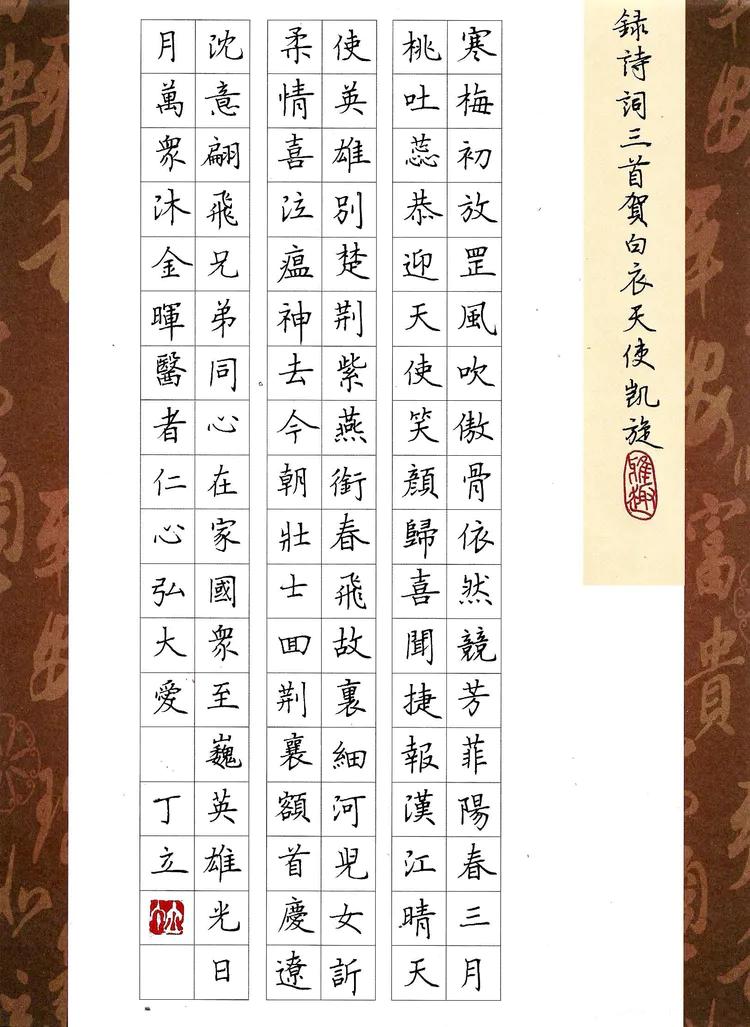 録詩詞三首賀白衣天使凱旋
雅趣
寒梅初放罡風吹傲骨依然競芳菲陽春三月
桃吐蕊恭迎天使笑顏歸喜聞捷報漢江晴天
使英雄別楚荆紫燕銜春飛故裏細河兒女訢
柔情喜泣瘟神去今朝壯士囬荆襄額首慶遼
沈意翩飛兄弟同心在家國衆至巍英雄光日
月萬衆沐金暉醫者仁心弘大愛 丁立